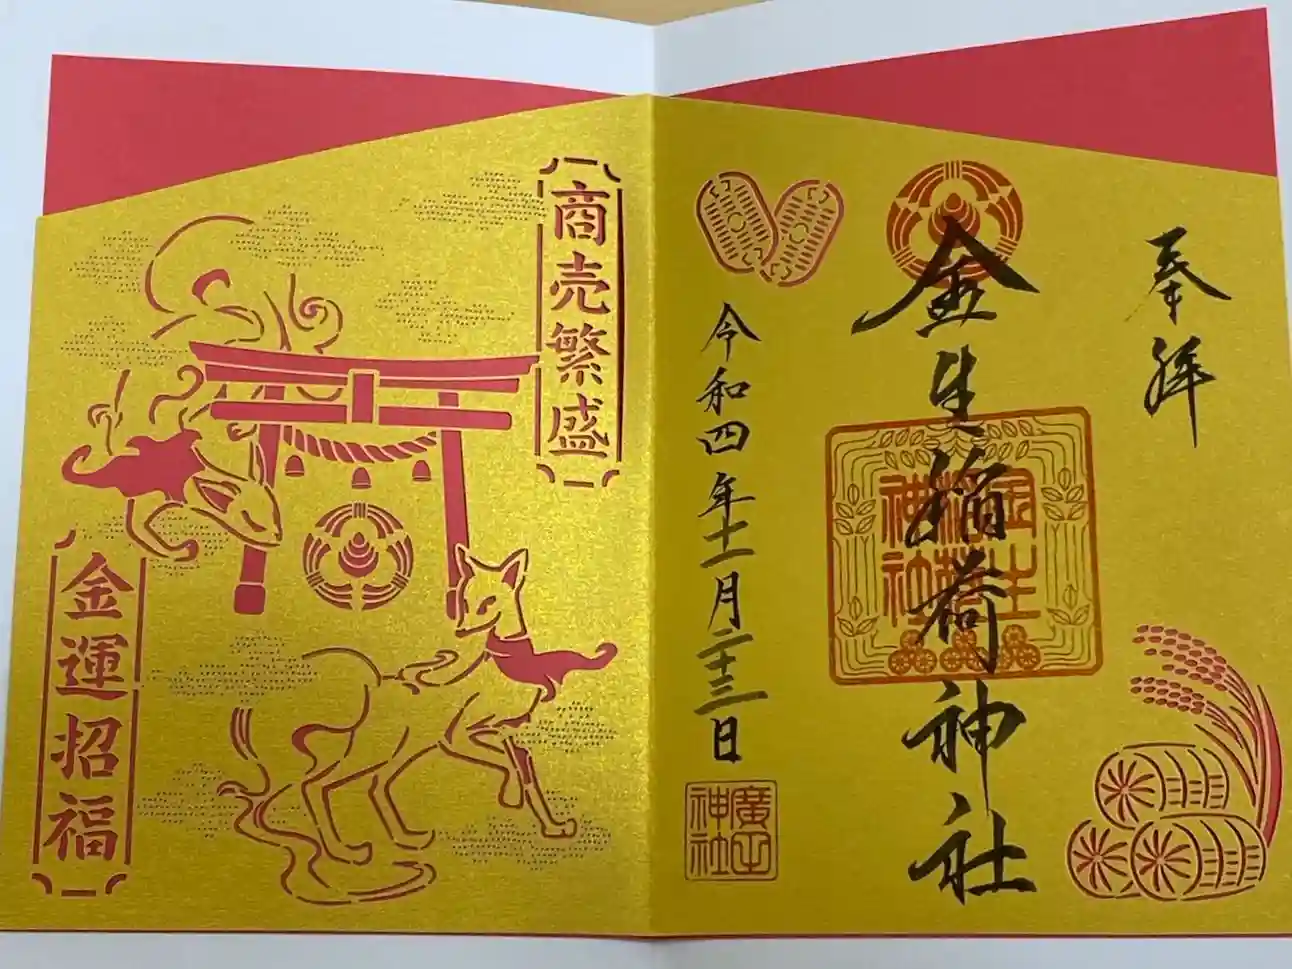 奉拝
金生稲荷神社
金生
稲荷
神社
令和四年十一月二十三日
廣田
神社
商売繁盛
金運招福